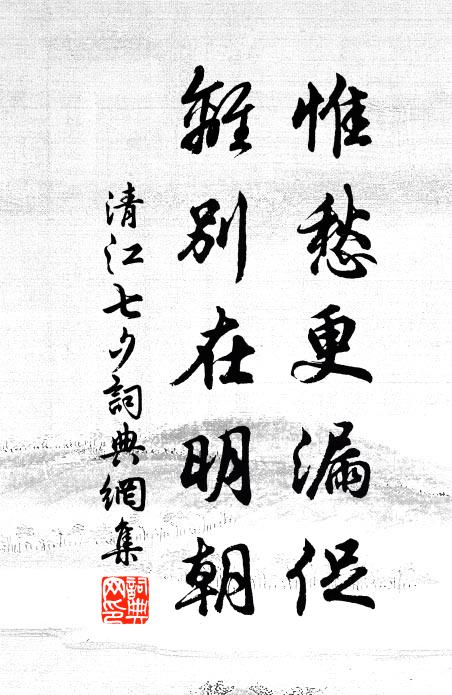 惟愁更漏促
離別在明朝
清江七夕詞典網集
詞典網印